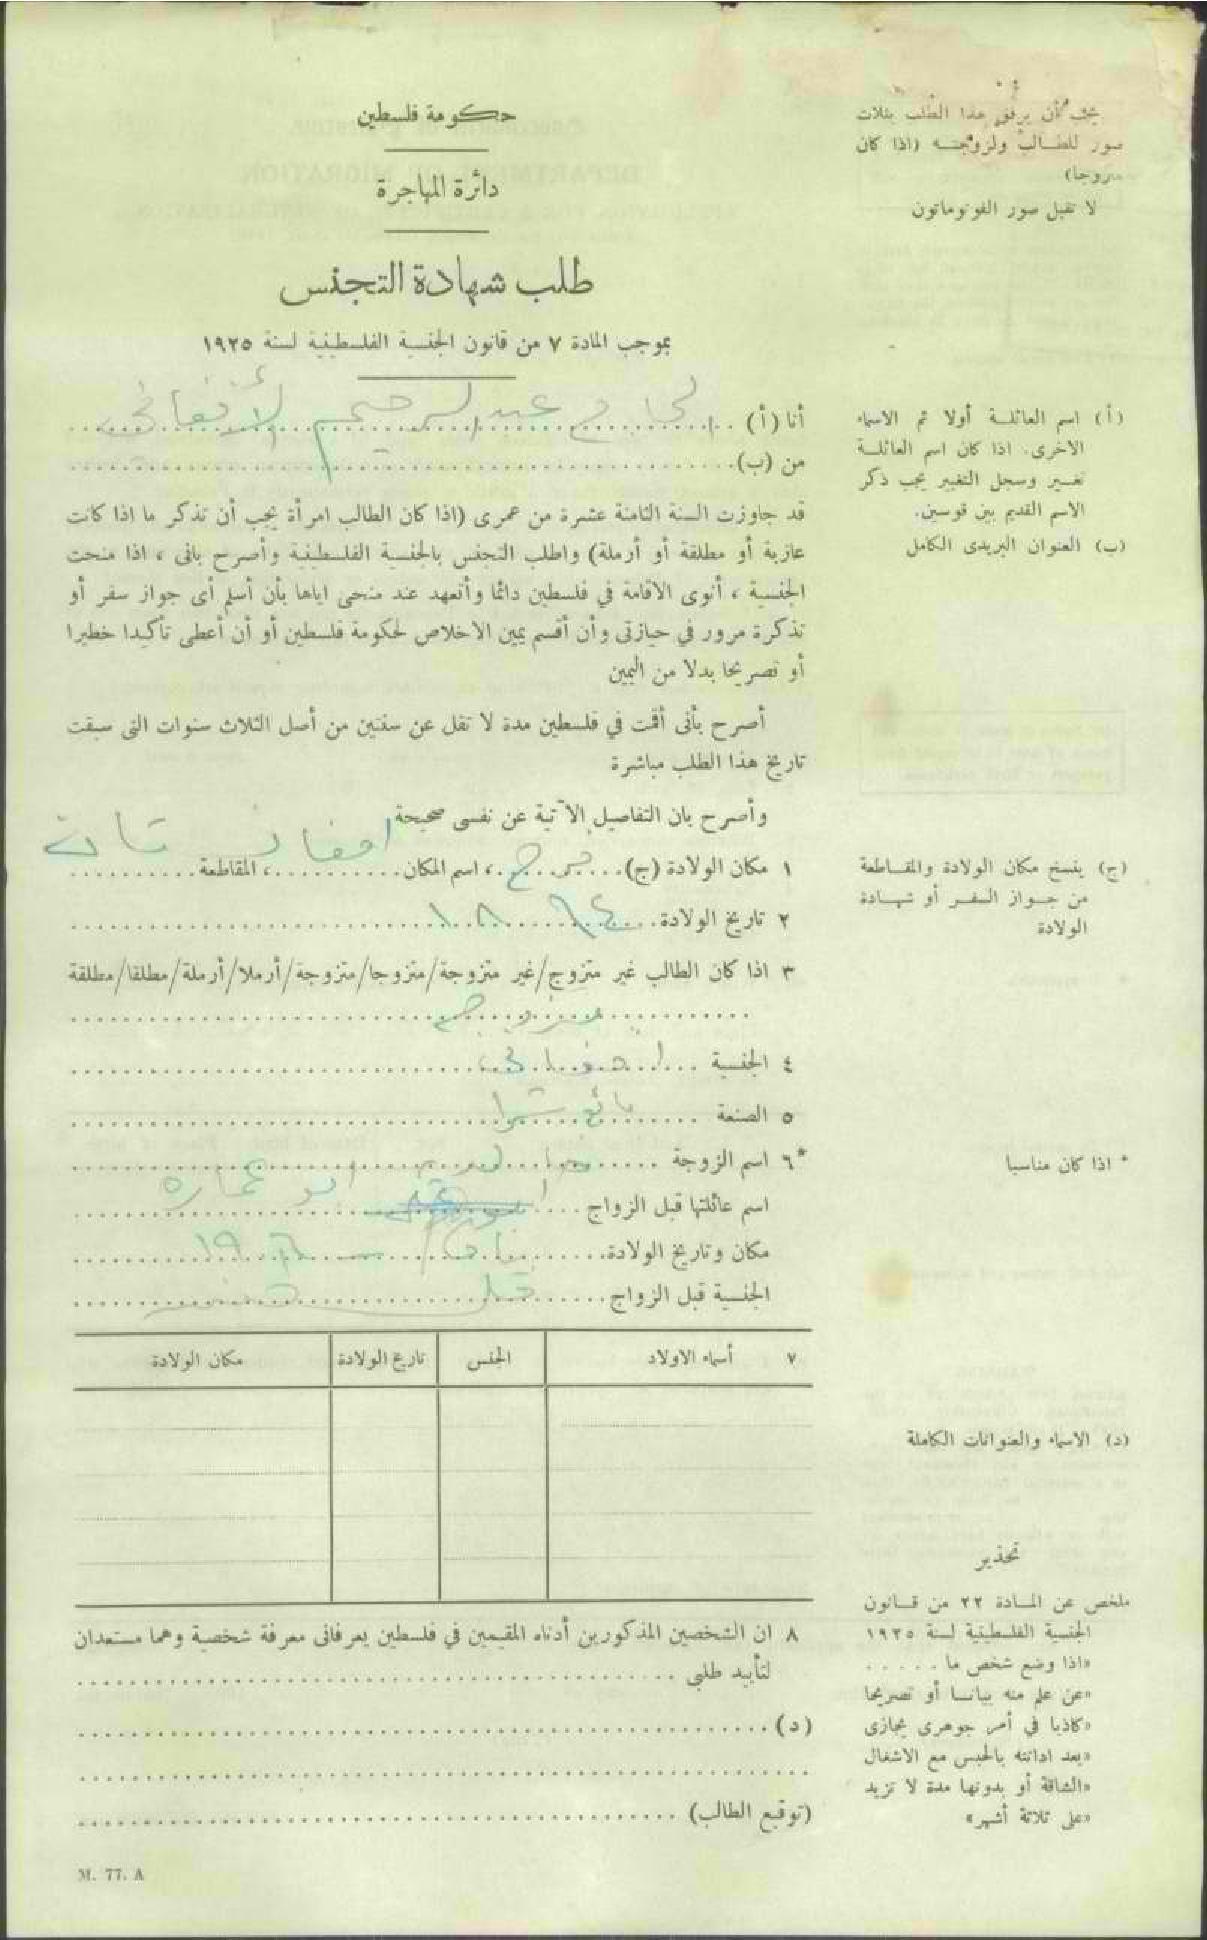 يجب أن يرفق هذا الطلب بثلاث
صور للطالب ولزوجته (اذا كان
متزوجا)
لا تقبل صور الفوتوماتون
حكومة فلسطين
دائرة المهاجرة
طلب شهادة التجنس
بموجب المادة ٧ من قانون الجنسية الفلسطينية لسنة ١٩٢٥
أنا (أ) الحاج عبد الرحيم الأفغاني
من (ب)
(أ) اسم العائلة أولا ثم الاسماء
الاخرى. اذا كان اسم العائلة
تغير وسجل التغيير يجب ذكر
الاسم القديم بين قوسين.
(ب) العنوان البريدى الكامل
قد جاوزت السنة الثامنة عشرة من عمرى (اذا كان الطالب امرأة يجب أن تذكر ما اذا كانت
عازبة أو مطلقة أو أرملة) واطلب التجنس بالجنسية الفلسطينية وأصرح بانى ، اذا منحت
الجنسية ، أنوى الاقامة في فلسطين دائما وأتعهد عند منحى اياها بأن أسلم أى جواز سفر أو
تذكرة مرور في حيازتى وأن أقسم يمين الاخلاص لحكومة فلسطين أو أن أعطى تأكيدا خطيرا
أو تصريحا بدلا من اليمين
أصرح بأنى أقمت في فلسطين مدة لا تقل عن سنتين من أصل الثلاث سنوات التى سبقت
تاريخ هذا الطلب مباشرة
وأصرح بان التفاصيل الآتية عن نفسى صحيحة
١ مكان الولادة (ج) ، اسم المكان ، المقاطعة افغانستان
(ج) ينسخ مكان الولادة والمقاطعة
من جواز السفر أو شهادة
الولادة
٢ تاريخ الولادة
٣ اذا كان الطالب غير متزوج/غير متزوجة/متزوجا/متزوجة/أرملا/أرملة/مطلقا/مطلقة
متزوج
٤ الجنسية افغاني
٥ الصنعة بائع
*٦ اسم الزوجة
* اذا كان مناسبا
اسم عائلتها قبل الزواج ابو عماره
مكان وتاريخ الولادة
الجنسية قبل الزواج
٧ أسماء الاولاد الجنس تاريخ الولادة مكان الولادة
(د) الاسماء والعنوانات الكاملة
تحذير
ملخص عن المادة ٢٢ من قانون
الجنسية الفلسطينية لسنة ١٩٢٥
«اذا وضع شخص ما . . . . .
«عن علم منه بيانا أو تصريحا
«كاذبا في أمر جوهرى يجازى
«بعد ادانته بالحبس مع الاشغال
«الشاقة أو بدونها مدة لا تزيد
«على ثلاثة أشهر»
٨ ان الشخصين المذكورين أدناه المقيمين في فلسطين يعرفانى معرفة شخصية وهما مستعدان
لتأييد طلبى
(د)
(توقيع الطالب)
M. 77. A